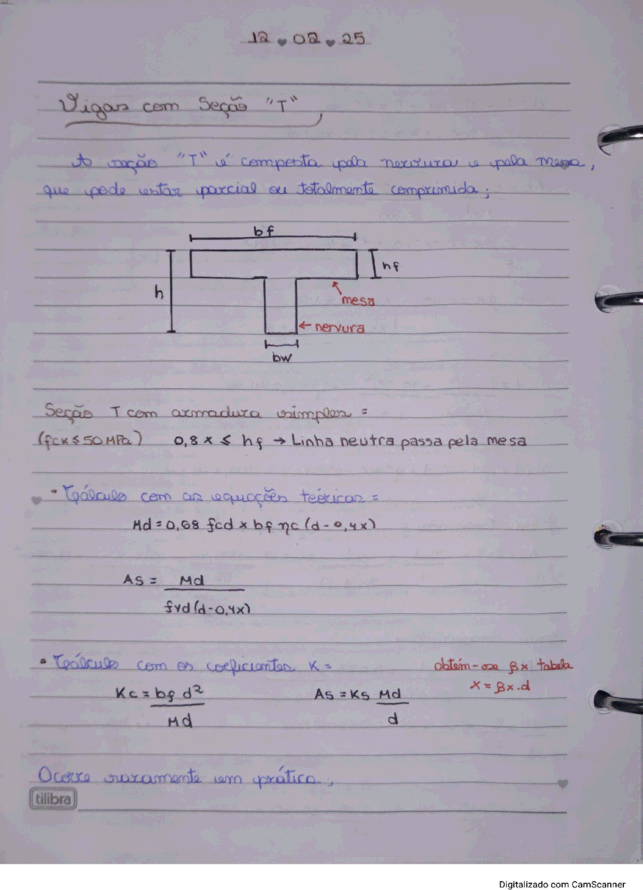 12 ♥ 02 ♥ 25
Vigas com Seção "T"
A seção "T" é composta pela nervura e pela mesa,
que pode estar parcial ou totalmente comprimida;
bf
hf
h
mesa
nervura
bw
Seção T com armadura simples =
(fck ≤ 50 MPa) 0,8 x ≤ hf → Linha neutra passa pela mesa
• Cálculo com as equações teóricas =
Md = 0,68 fcd x bf ηc (d - 0,4x)
As = Md
fyd (d - 0,4x)
• Cálculo com os coeficientes K =
obtém-se βx tabela
x = βx.d
Kc = bf d²
Md
As = Ks Md
d
Ocorre raramente em prática;
tilibra
Digitalizado com CamScanner